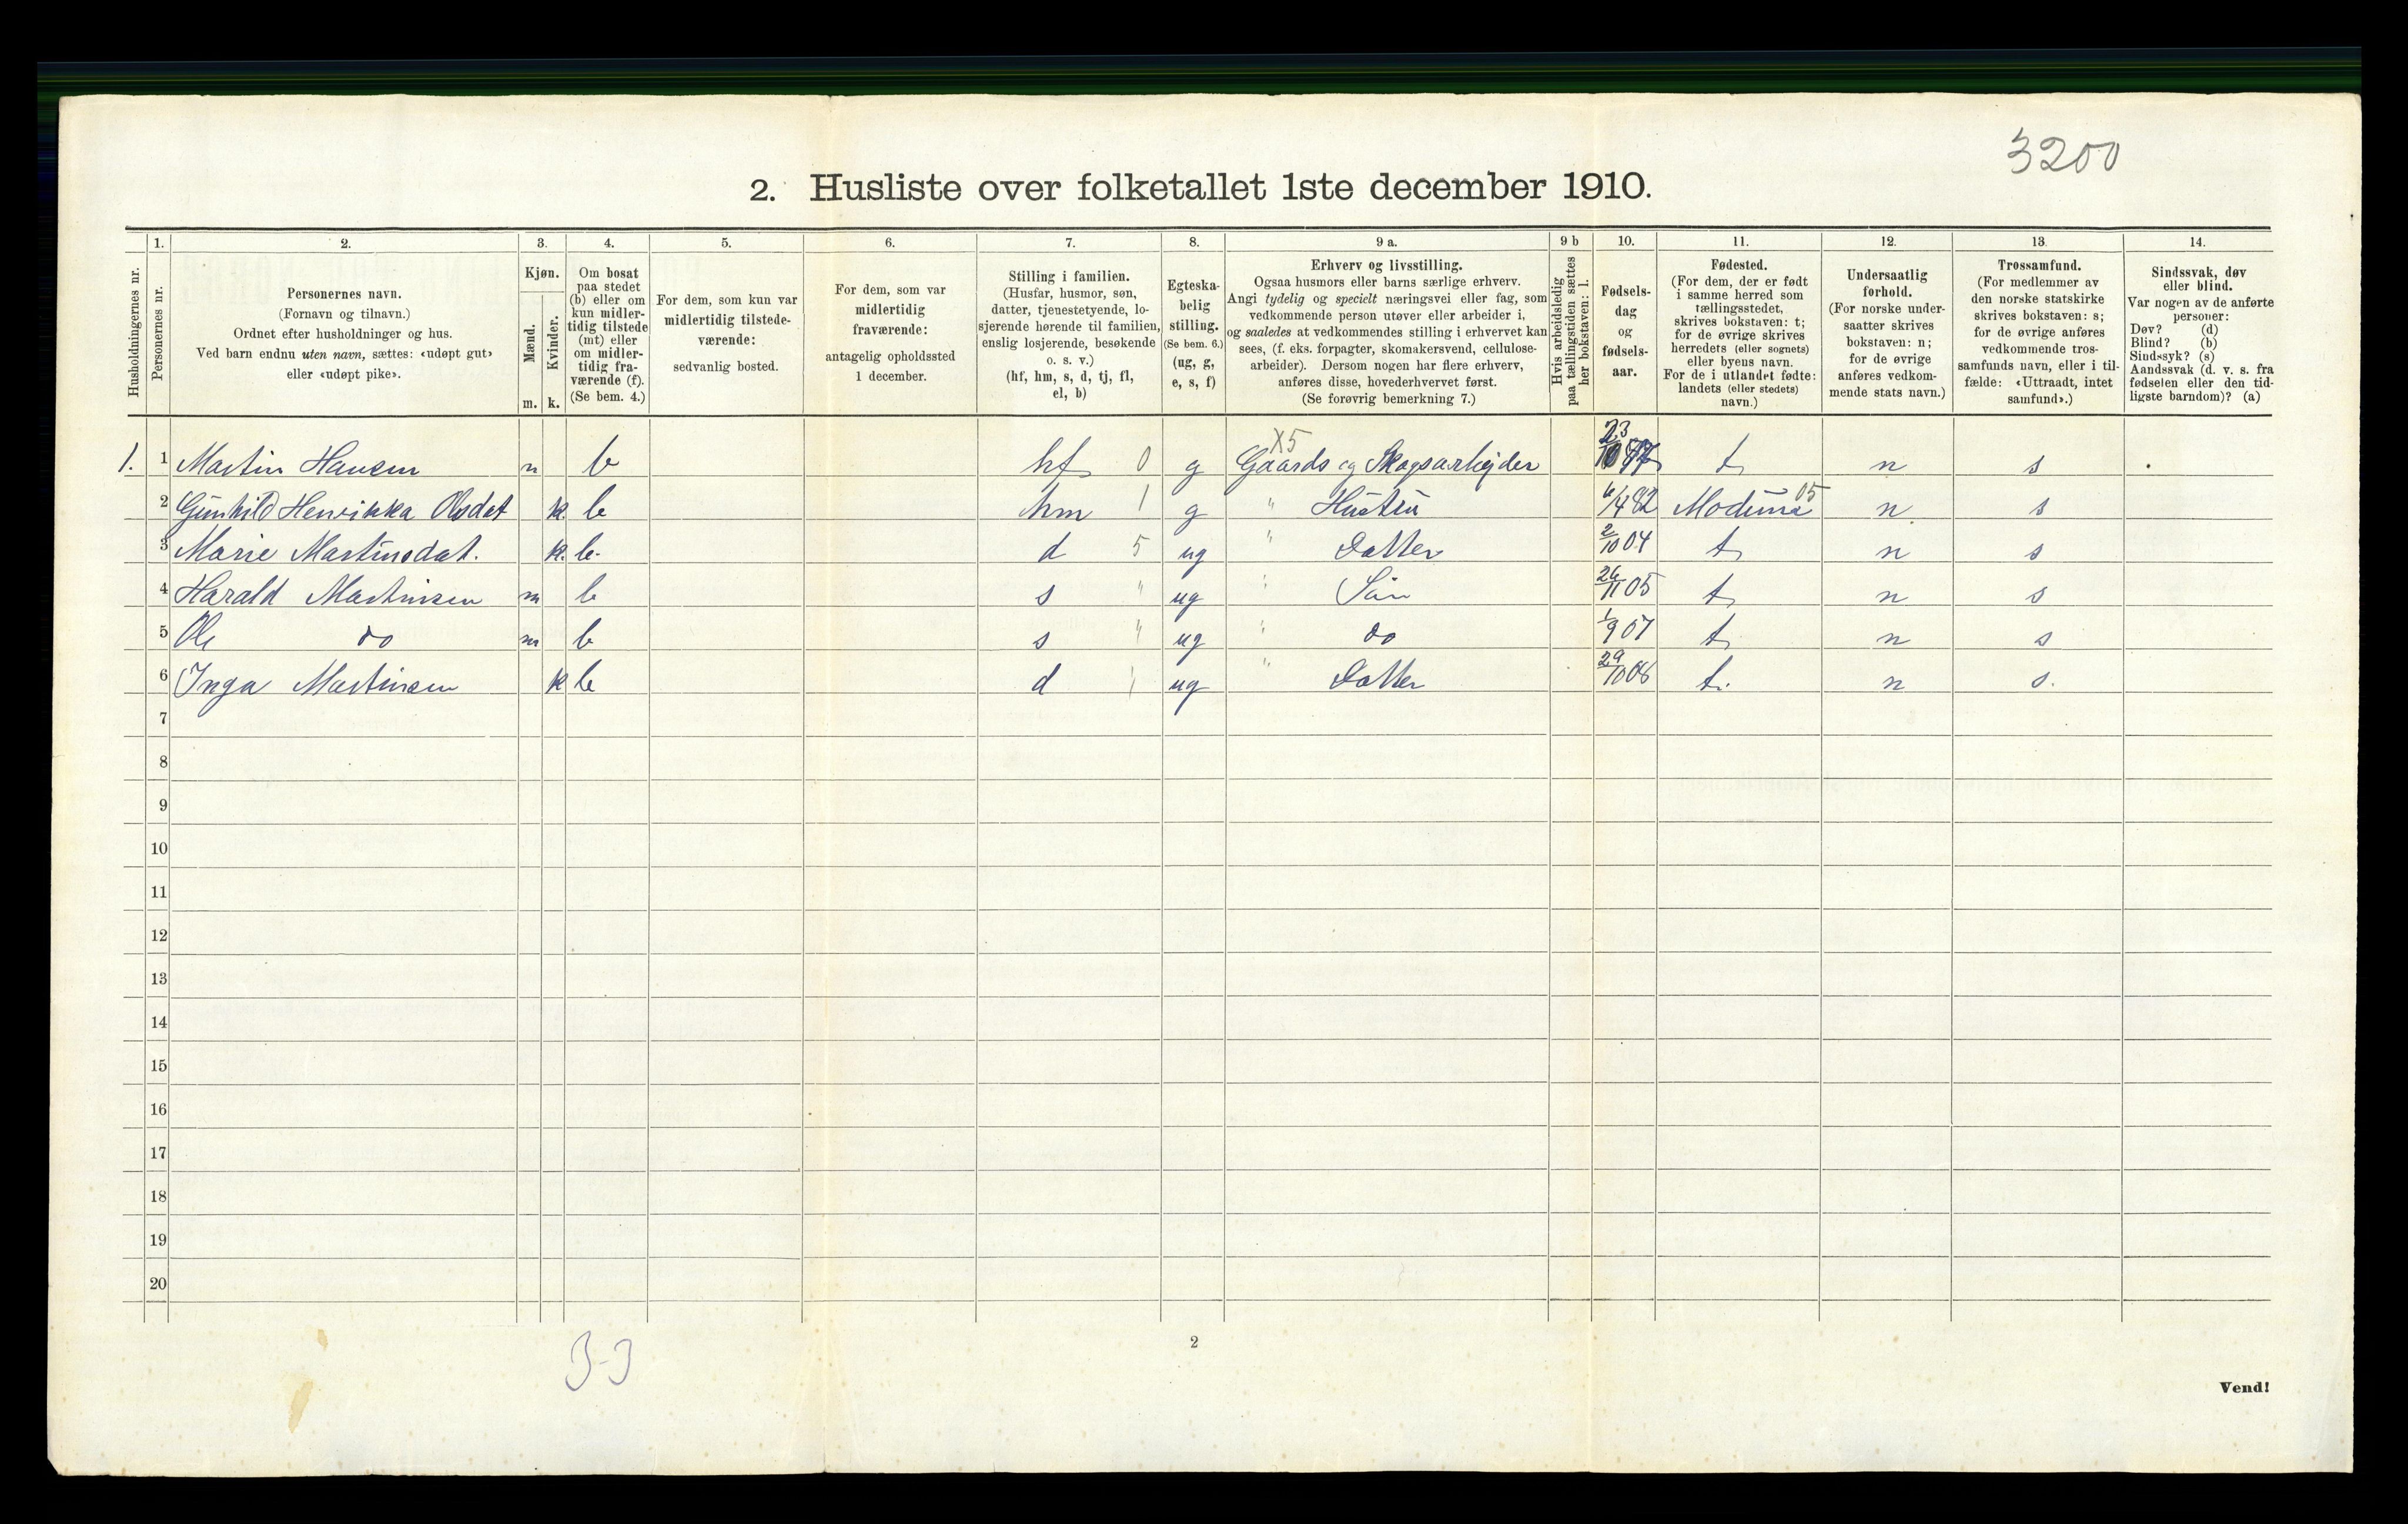 3200
2. Husliste over folketallet 1ste december 1910.
Husholdningernes nr.
1. Personernes nr.
2. Personernes navn. (Fornavn og tilnavn.) Ordnet efter husholdninger og hus. Ved barn endnu uten navn, sættes: «udøpt gut» eller «udøpt pike».
3. Kjøn. Mænd. m. Kvinder. k.
4. Om bosat paa stedet (b) eller om kun midlertidig tilstede (mt) eller om midlertidig fraværende (f). (Se bem. 4.)
5. For dem, som kun var midlertidig tilstedeværende: sedvanlig bosted.
6. For dem, som var midlertidig fraværende: antagelig opholdssted 1 december.
7. Stilling i familien. (Husfar, husmor, søn, datter, tjenestetyende, losjerende hørende til familien, enslig losjerende, besøkende o. s. v.) (hf, hm, s, d, tj, fl, el, b)
8. Egteskabelig stilling. (Se bem. 6.) (ug, g, e, s, f)
9 a. Erhverv og livsstilling. Ogsaa husmors eller barns særlige erhverv. Angi tydelig og specielt næringsvei eller fag, som vedkommende person utøver eller arbeider i, og saaledes at vedkommendes stilling i erhvervet kan sees, (f. eks. forpagter, skomakersvend, cellulosearbeider). Dersom nogen har flere erhverv, anføres disse, hovederhvervet først. (Se forøvrig bemerkning 7.)
9 b Hvis arbeidsledig paa tællingstiden sættes her bokstaven: l.
10. Fødselsdag og fødselsaar.
11. Fødested. (For dem, der er født i samme herred som tællingsstedet, skrives bokstaven: t; for de øvrige skrives herredets (eller sognets) eller byens navn. For de i utlandet fødte: landets (eller stedets) navn.)
12. Undersaatlig forhold. (For norske undersaatter skrives bokstaven: n; for de øvrige anføres vedkommende stats navn.)
13. Trossamfund. (For medlemmer av den norske statskirke skrives bokstaven: s; for de øvrige anføres vedkommende trossamfunds navn, eller i tilfælde: «Uttraadt, intet samfund».)
14. Sindssvak, døv eller blind. Var nogen av de anførte personer: Døv? (d) Blind? (b) Sindssyk? (s) Aandssvak (d. v. s. fra fødselen eller den tidligste barndom)? (a)
X5
1. 1 Martin Hansen m b hf 0 g Gaards og Skogsarbejder 23/10 t n s
2 Gunhild Henrikka Olsdat k. b hm 1 g " Hustru 6/4 82 Modum 05 n s
3 Marie Martinsdat. k. b. d 5 ug " Datter 2/10 04 t n s
4 Harald Martinsen m b s " ug " Sön 26/11 05 t n s
5 Ole do m b s " ug " do 1/9 07 t n s
6 Inga Martinsen k b d " ug " Datter 29/10 08 t. n s.
7
8
9
10
11
12
13
14
15
16
17
18
19
20
3-3
2
Vend!